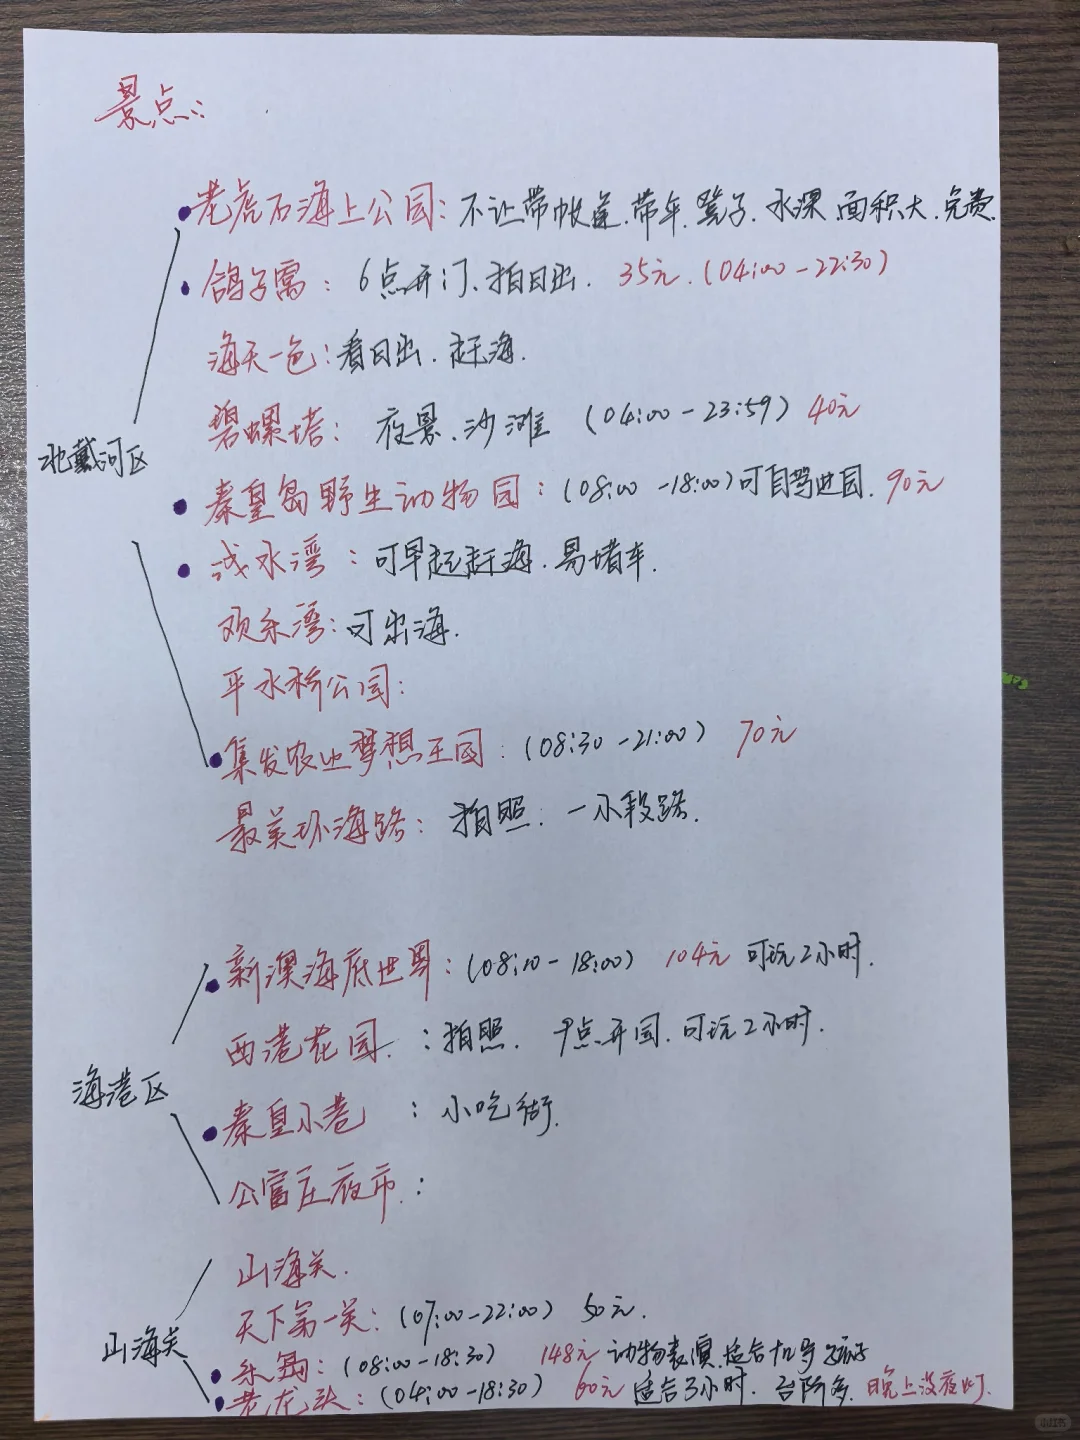 景点:
老虎石海上公园: 不让带帐篷、带车、凳子、水深 面积大、免费
鸽子窝: 6点开门、拍日出. 35元. (04:00-22:30)
海天一色: 看日出. 赶海.
碧螺塔: 夜景、沙滩 (04:00-23:59) 40元
北戴河区
秦皇岛野生动物园: (08:00-18:00) 可自驾进园. 90元
浅水湾: 可早起赶海. 易堵车.
欢乐湾: 可出海.
平水桥公园:
集发农业梦想王国: (08:30-21:00) 70元
最美环海路: 拍照. 一小段路.
新澳海底世界: (08:10-18:00) 104元 可玩2小时.
西港花园: 拍照. 9点开园. 可玩2小时.
海港区
秦皇小巷: 小吃街.
公富庄夜市:
山海关.
天下第一关: (07:00-22:00) 50元.
山海关
乐岛: (08:00-18:30) 148元 动物表演. 适合带孩子
老龙头: (04:00-18:30) 60元 适合3小时. 台阶多. 晚上没夜灯.
小红书